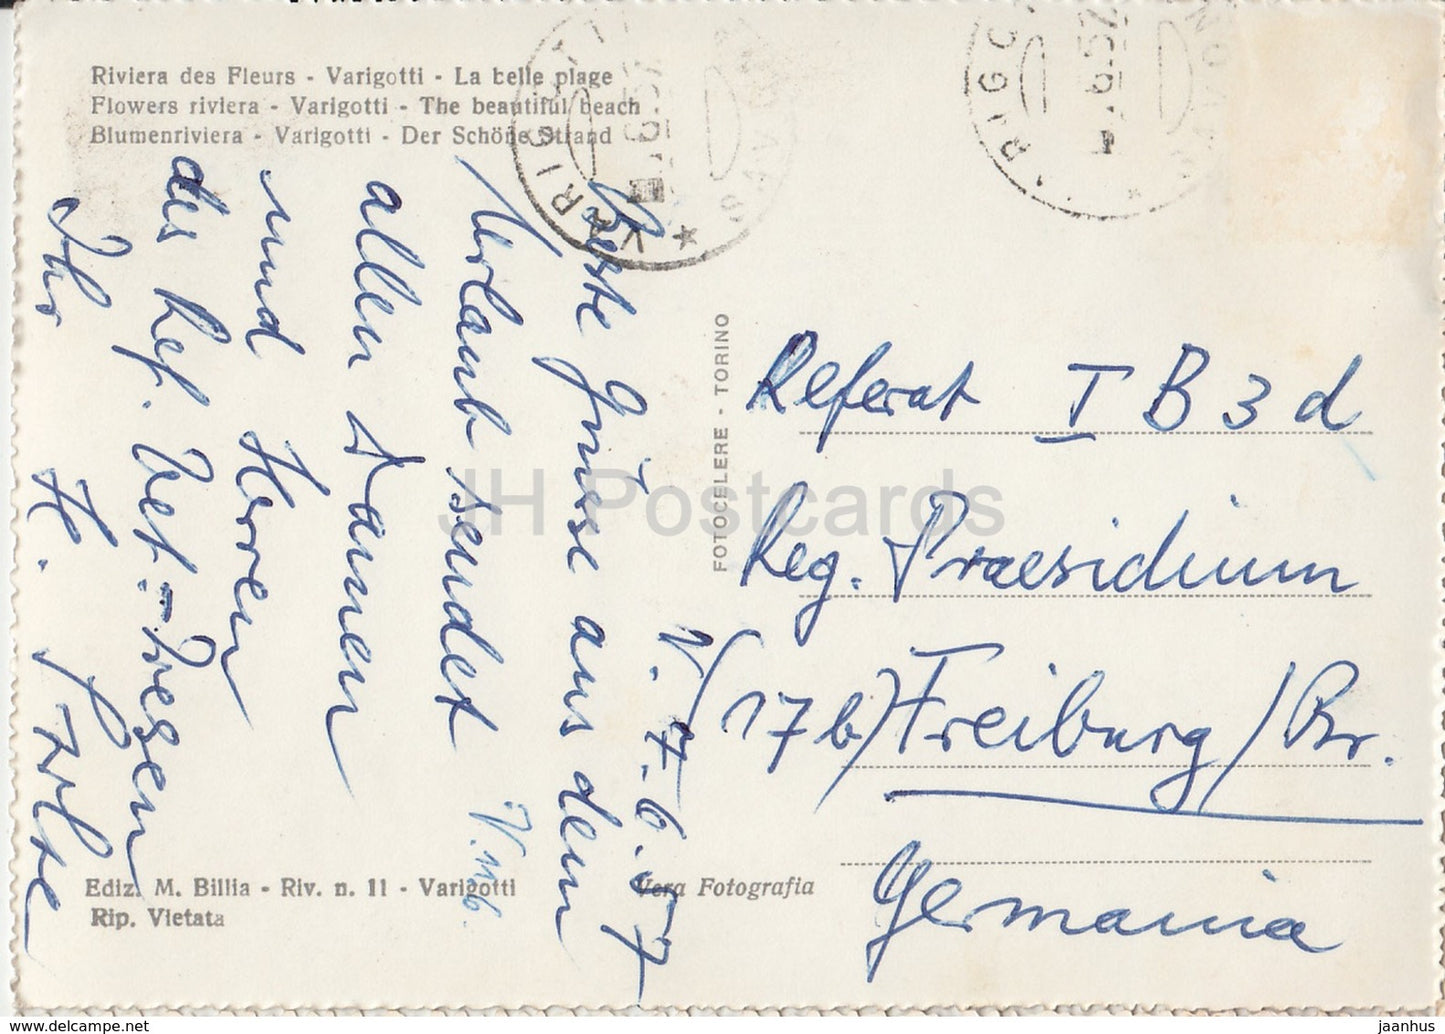 Riviera des Fleurs - Varigotti - La belle plage
Flowers riviera - Varigotti - The beautiful beach
Blumenriviera - Varigotti - Der Schöne Strand
V. 7.6.57
Beste Grüße aus dem
Urlaub sendet
allen Damen
und Herren
des Ref. Vet.-Wesen
Ihr H.
FOTOCELERE - TORINO
Referat I B 3 d
Reg. Praesidium
(17b) Freiburg/Br.
Germania
Ediz. M. Billia - Riv. n. 11 - Varigotti
Rip. Vietata
Vera Fotografia
VARIGOTTI
SAVONA
JH Postcards
oldthing.com
jaanhus